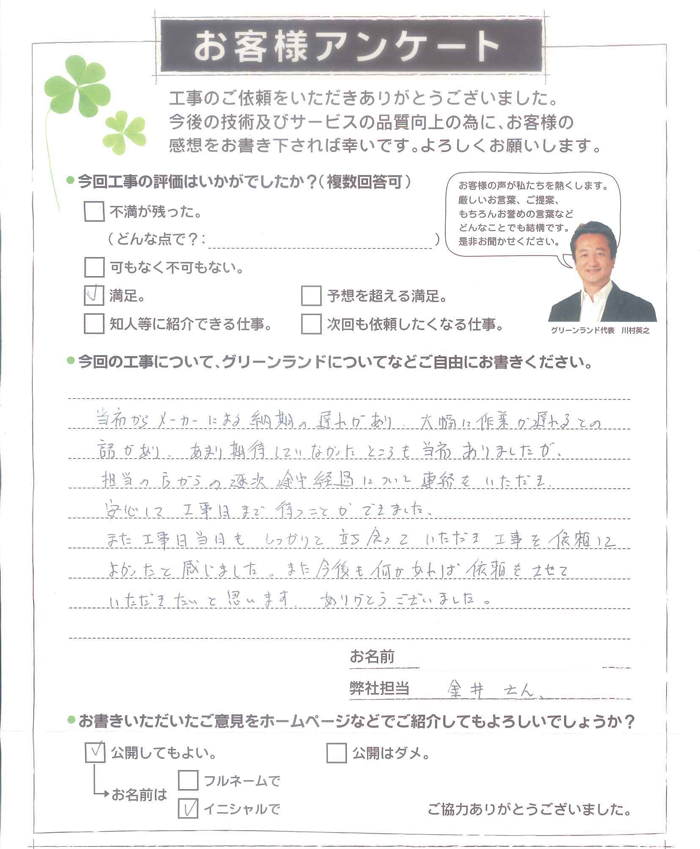 お客様アンケート
工事のご依頼をいただきありがとうございました。
今後の技術及びサービスの品質向上の為に、お客様の
感想をお書き下されば幸いです。よろしくお願いします。
●今回工事の評価はいかがでしたか？（複数回答可）
お客様の声が私たちを熱くします。
厳しいお言葉、ご提案、
もちろんお誉めの言葉など
どんなことでも結構です。
是非お聞かせください。
不満が残った。
（どんな点で？：　）
可もなく不可もない。
満足。
予想を超える満足。
知人等に紹介できる仕事。
次回も依頼したくなる仕事。
グリーンランド代表　川村英之
●今回の工事について、グリーンランドについてなどご自由にお書きください。
当初からメーカーによる納期の遅れがあり、大幅に作業が遅れるとの
話があり、あまり期待していなかったところも当初ありましたが、
担当の方からの逐次途中経過について連絡をいただき、
安心して工事日まで待つことができました。
また工事日当日もしっかりと立ち会っていただき工事を依頼して
よかったと感じました。また今後も何かあれば依頼をさせて
いただきたいと思います。ありがとうございました。
お名前
弊社担当　金井さん、
●お書きいただいたご意見をホームページなどでご紹介してもよろしいでしょうか？
公開してもよい。
公開はダメ。
お名前は
フルネームで
イニシャルで
ご協力ありがとうございました。